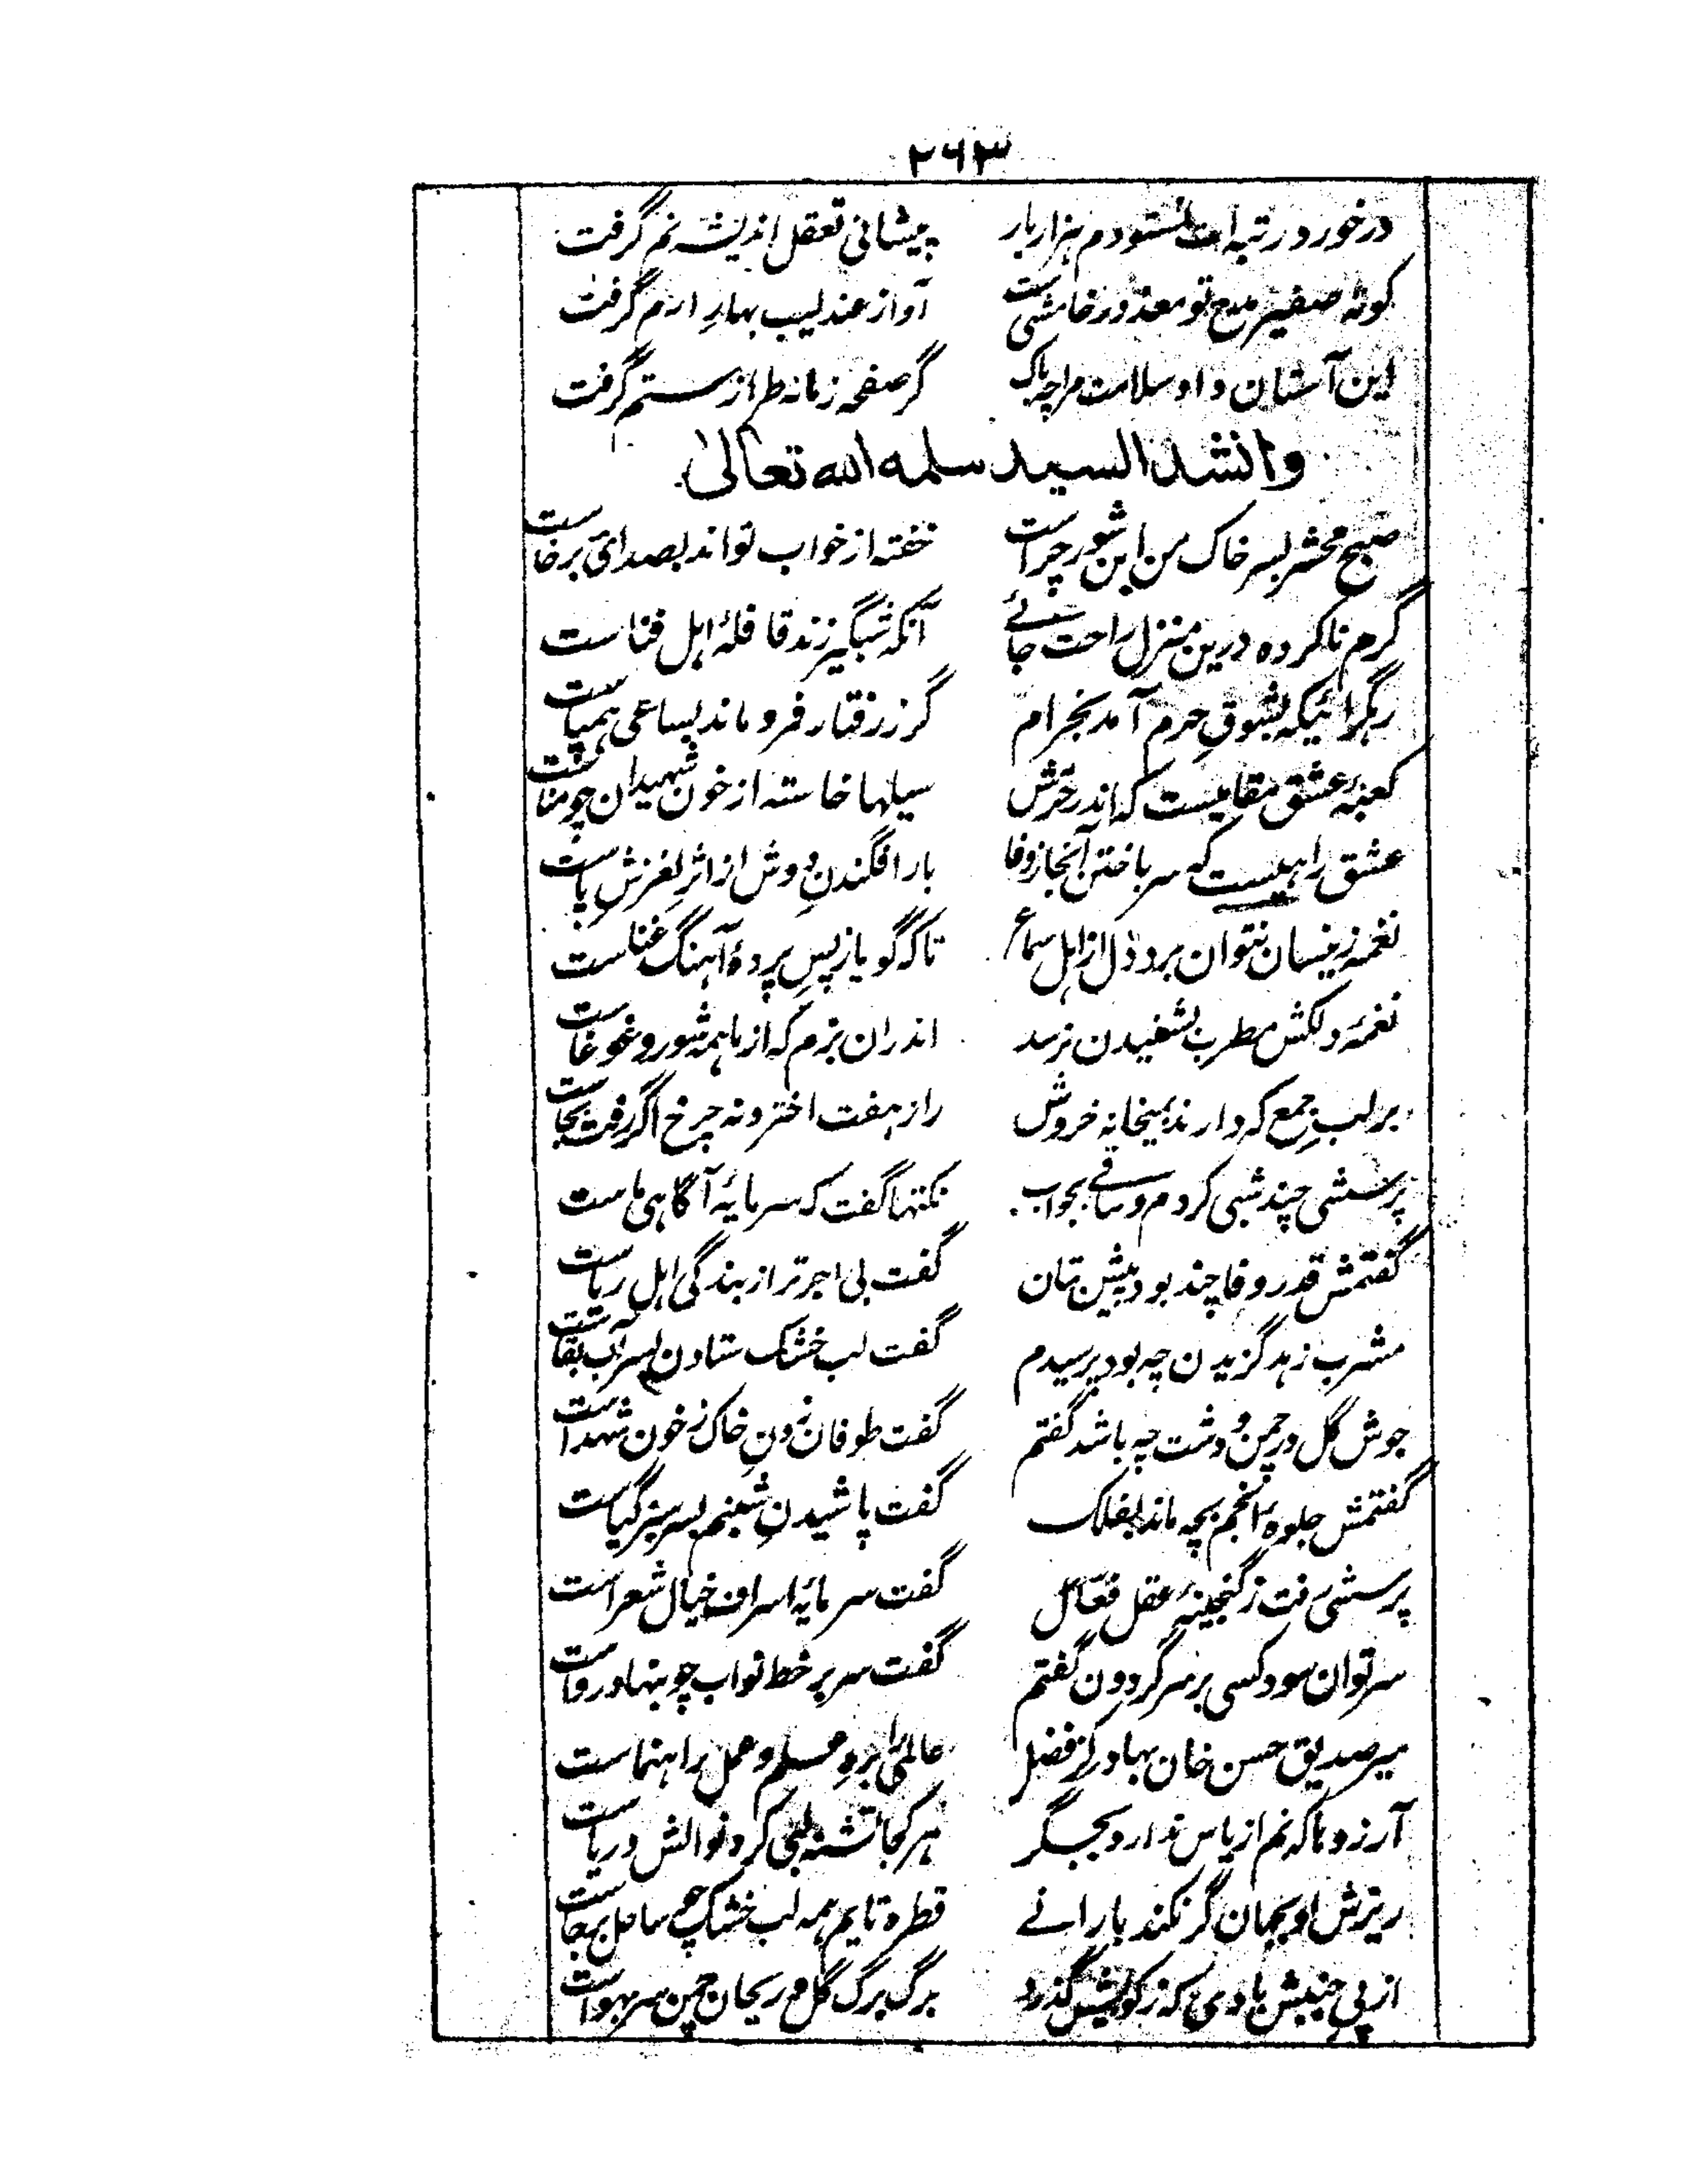 ۲۶۳
درخورد رتبه ات نستودم هزار بار پیشانی تعقل اندیشه نم گرفت
کوته صفیر مدح تو معذور خامشی ست آواز عندلیب بهارِ ارم گرفت
این آستان و او سلامت مرا چه باک گر صفحه زمانه طراز ستم گرفت
وانشد السید سلمه الله تعالیٰ
صبح محشر بسر خاک من این شور چراست خفته از خواب تواند بصدای برخاست
گرم ناکرده درین منزل راحت جائے آنکه شبگیر زند قافلۂ اہل فناست
رہگرائیکه بشوقِ حرم آمد بخرام گر ز رفتار فرو ماند بساعی ہمپاست
کعبۂ عشق مقامیست که اندر حرمش سیلها خاسته از خون شہیدان چو مناست
عشق راہیست که سر باختن آنجا ز وفا بار افگندنِ دوش از اثرِ لغزشِ پاست
نغمه زینسان نتوان برد دل از اہل سماع تا که گویا ز پسِ پردۂ آہنگ غناست
نغمۂ دلکش مطرب بشنیدن نرسد اندران بزم که از ما ہمه شور و غوغاست
بر لبِ جمع که دارند بمیخانه خروش راز ہفت اختر و نه چرخ اگر رفت بجاست
پرسشی چند شبی کردم و ساقے بجواب نکتها گفت که سرمایۂ آگاہی ماست
گفتمش قدر وفا چند بود پیش بتان گفت بی اجرتر از بندگی اہل ریاست
مشرب زہد گزیدن چه بود پرسیدم گفت لب خشک ستادن بسر آب بقاست
جوش گل در چمن و دشت چه باشد گفتم گفت طوفان زدنِ خاک ز خون شہداست
گفتمش جلوۂ انجم بچه ماند بفلک گفت پاشیدنِ شبنم بسر سبز گیاست
پرسشی رفت ز گنجینۂ عقل فعّال گفت سرمایۂ اسراف خیال شعراست
سر توان سود کسی بر سر گردون گفتم گفت سر بر خط نواب چو بنهاد رواست
میر صدیق حسن خان بہادر کز فضل عالمی را برهِ علم و عمل راہنماست
آرزو ناکه نم از یاس ندارد بجگر ہر کجا تشنه لبی کرد نوالش دریاست
ریزش او بجہان گر نکند بارانے قطره تا یم ہمه لب خشک چو ساحل برجاست
از پی جنبش بادی که ز کویش گذرد برگ برگ گل و ریحان چمن سر بہواست